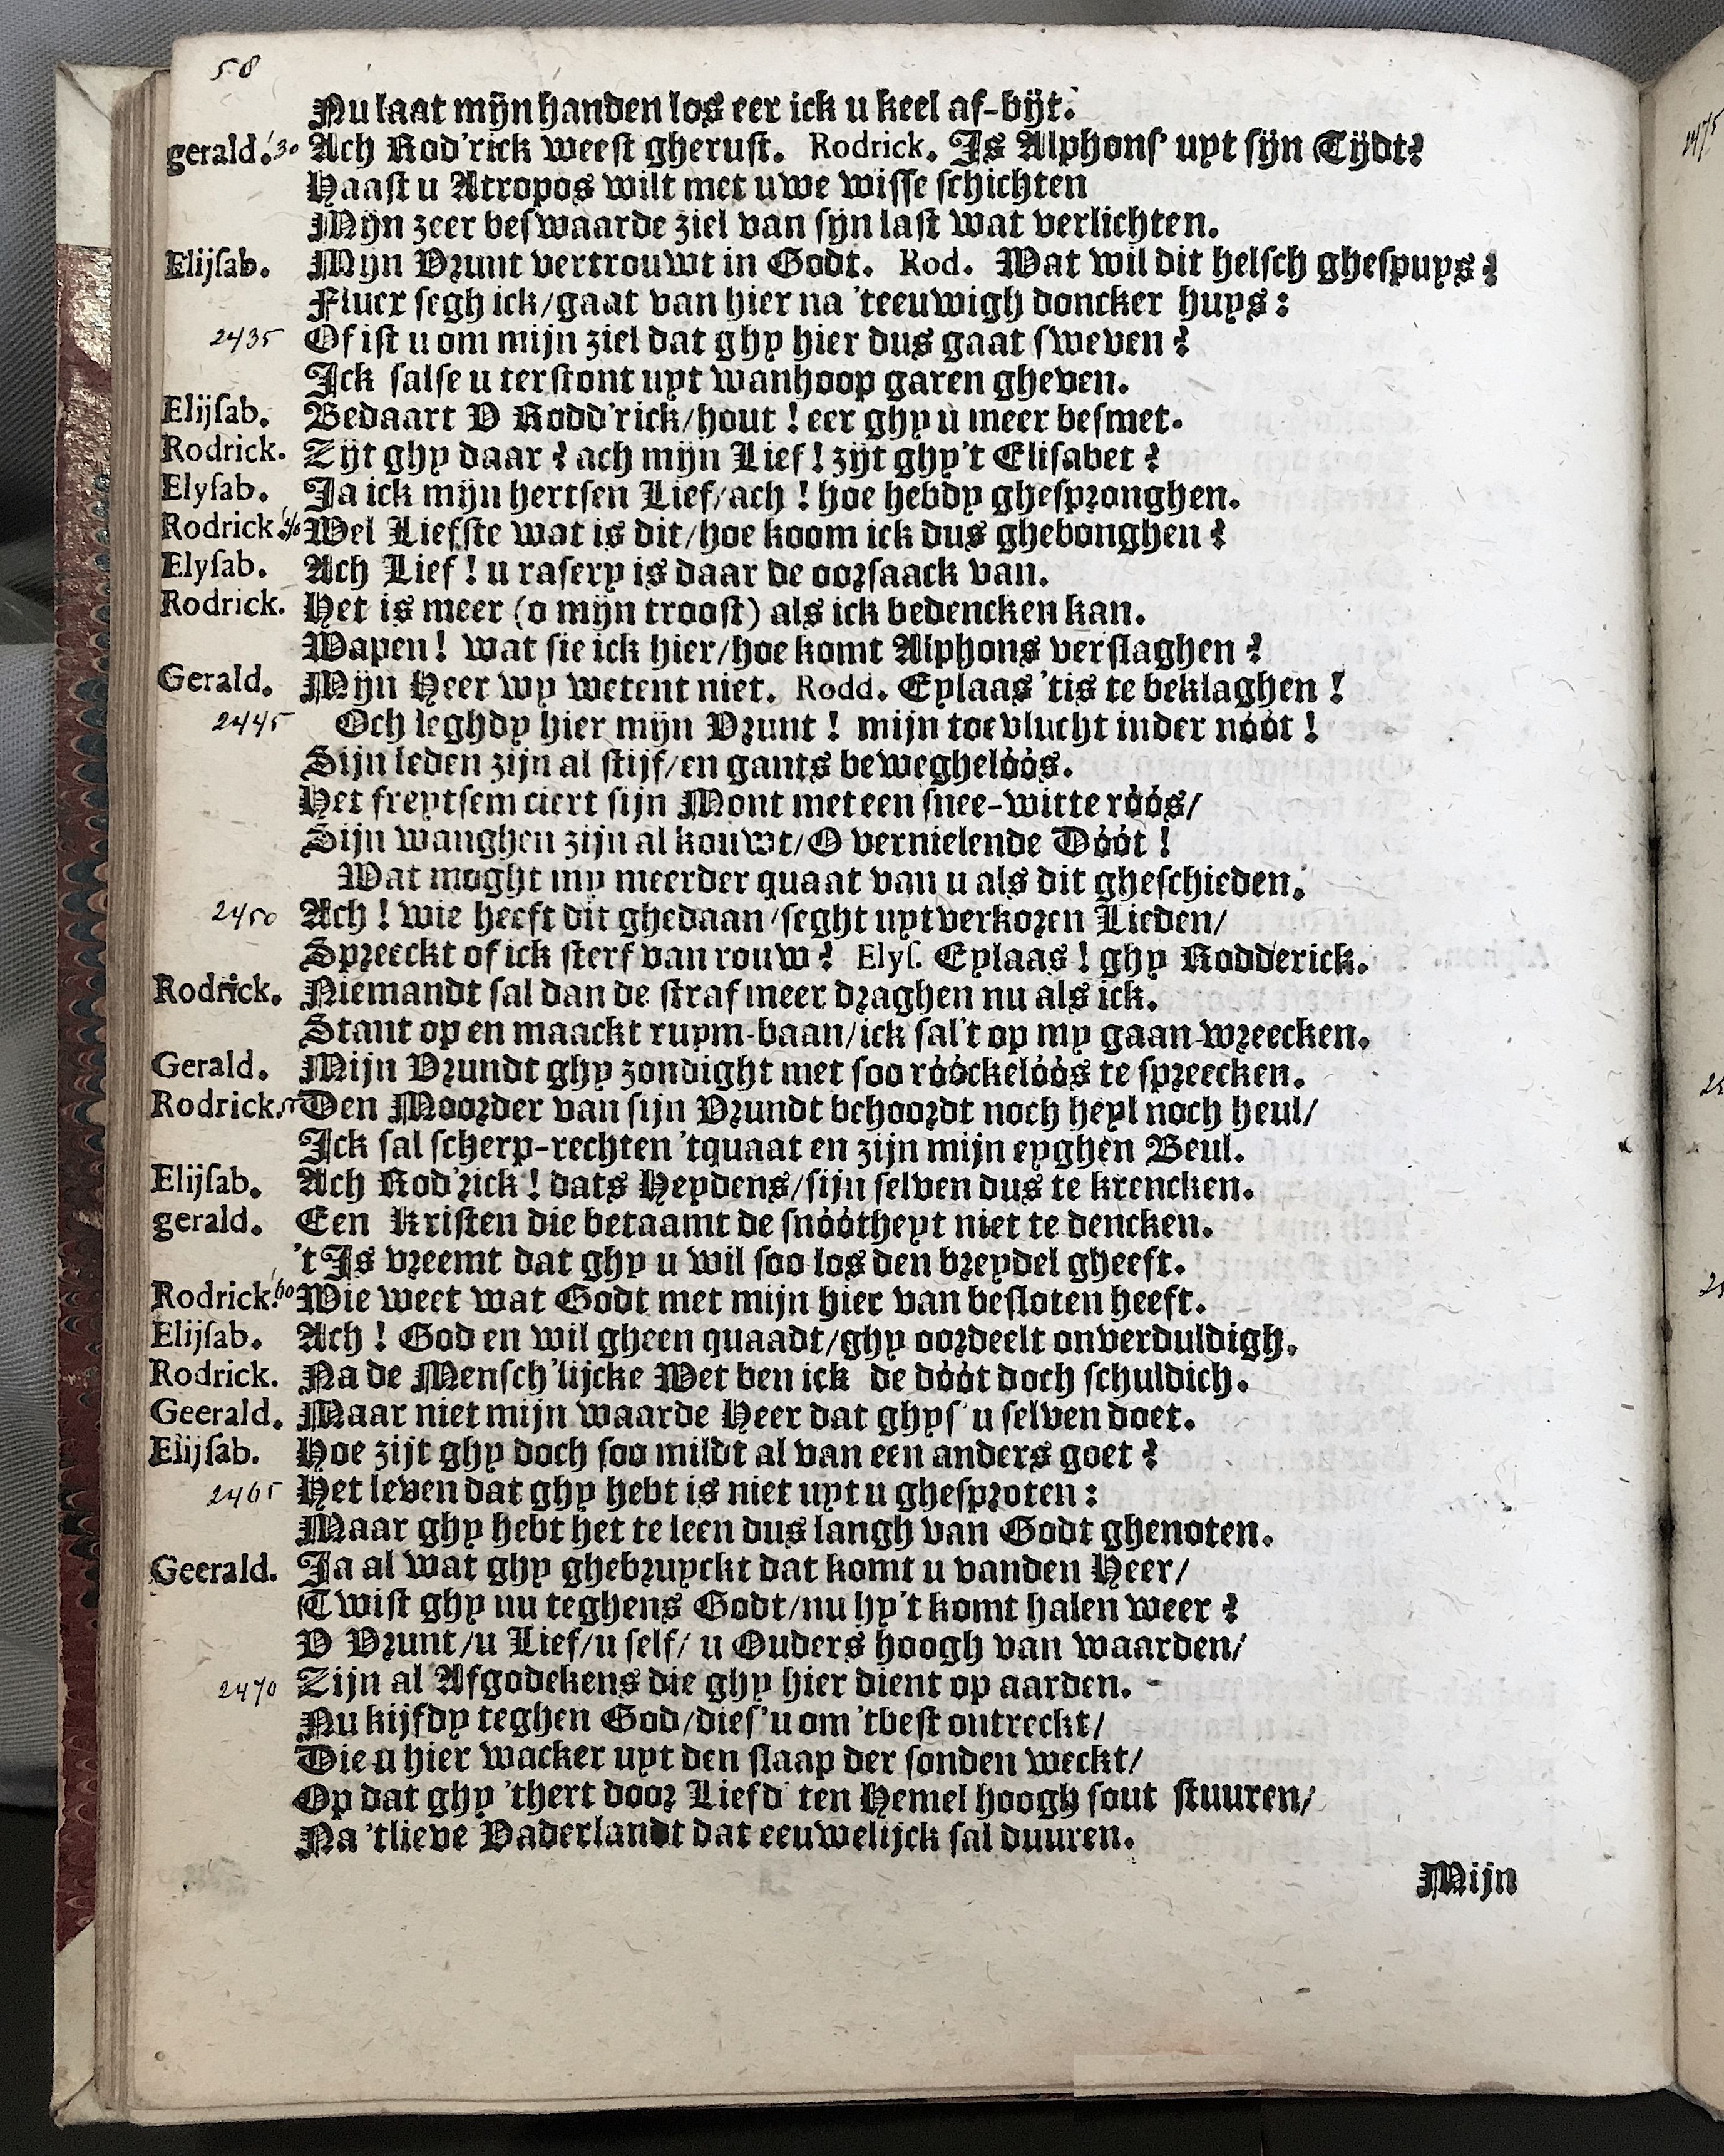 58
Nu laat mijn handen los eer ick u keel af-bijt.
gerald. '30 Ach Rod'rick weest gherust. Rodrick. Is Alphons' uyt sijn Tijdt?
Haast u Atropos wilt met uwe wisse schichten
Mijn zeer beswaarde ziel van sijn last wat verlichten.
Elijsab. Mijn Vrunt vertrouwt in Godt. Rod. Wat wil dit helsch ghespuys?
Flucx segh ick/gaat van hier na 'teeuwigh doncker huys:
2435 Of ist u om mijn ziel dat ghy hier dus gaat sweven?
Ick salse u terstont uyt wanhoop garen gheven.
Elijsab. Bedaart V Rodd'rick/hout! eer ghy u meer besmet.
Rodrick. Zijt ghy daar? ach mijn Lief! zijt ghy't Elisabet?
Elysab. Ja ick mijn hertsen Lief/ach! hoe hebdy ghespronghen.
Rodrick. '40 Wel Liefste wat is dit/hoe koom ick dus ghebonghen?
Elysab. Ach Lief! u rasery is daar de oorsaack van.
Rodrick. Het is meer (o mijn troost) als ick bedencken kan.
Wapen! wat sie ick hier/hoe komt Alphons verslaghen?
Gerald. Mijn Heer wy wetent niet. Rodd. Eylaas 'tis te beklaghen!
2445 Och leghdy hier mijn Vrunt! mijn toevlucht inder nóót!
Sijn leden zijn al stijf/en gants beweghelóós.
Het freytsem ciert sijn Mont met een snee-witte róós/
Sijn wanghen zijn al kouwt/O vernielende Dóót!
Wat moght my meerder quaat van u als dit gheschieden.
2450 Ach! wie heeft dit ghedaan/seght uytverkozen Lieden/
Spreeckt of ick sterf van rouw? Elys. Eylaas! ghy Rodderick.
Rodrick. Niemandt sal dan de straf meer draghen nu als ick.
Stant op en maackt ruym-baan/ick sal't op my gaan wreecken.
Gerald. Mijn Vrundt ghy zondight met soo róóckelóós te spreecken.
Rodrick. Den Moorder van sijn Vrundt behoordt noch heyl noch heul/
Ick sal scherp-rechten 'tquaat en zijn mijn eyghen Beul.
Elijsab. Ach Rod'rick! dats Heydens/sijn selven dus te krencken.
gerald. Een Kristen die betaamt de snóótheyt niet te dencken.
't Is vreemt dat ghy u wil soo los den breydel gheeft.
Rodrick. '60 Wie weet wat Godt met mijn hier van besloten heeft.
Elijsab. Ach! God en wil gheen quaadt/ghy oordeelt onverduldigh.
Rodrick. Na de Mensch'lijcke Wet ben ick de dóót doch schuldich.
Geerald. Maar niet mijn waarde Heer dat ghys' u selven doet.
Elijsab. Hoe zijt ghy doch soo mildt al van een anders goet?
2465 Het leven dat ghy hebt is niet uyt u ghesproten:
Maar ghy hebt het te leen dus langh van Godt ghenoten.
Geerald. Ja al wat ghy ghebruyckt dat komt u vanden Heer/
Twist ghy nu teghens Godt/nu hy't komt halen weer?
V Vrunt/u Lief/u self/ u Ouders hoogh van waarden/
2470 Zijn al Afgodekens die ghy hier dient op aarden.
Nu kijfdy teghen God/dies' u om 'tbest ontreckt/
Die u hier wacker uyt den slaap der sonden weckt/
Op dat ghy 'thert door Liefd' ten Hemel hoogh sout stuuren/
Na 'tlieve Vaderlandt dat eeuwelijck sal duuren.
Mijn
2475